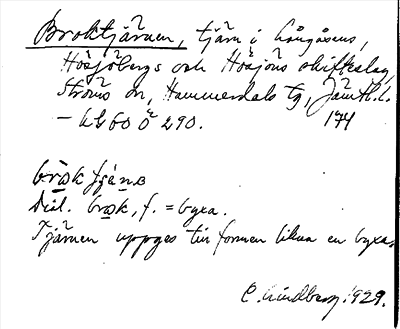 Broktjärnen, tjärn i Långåsens,
Hösjöbergs och Hösjöns skifteslag,
Ströms sn, Hammerdals tg, Jämtl. l.
– LG 60 Ö 290. 174
Dial. brok, f. = byxa.
Tjärnen uppges till formen likna en byxa.
C. Lindberg 1929.